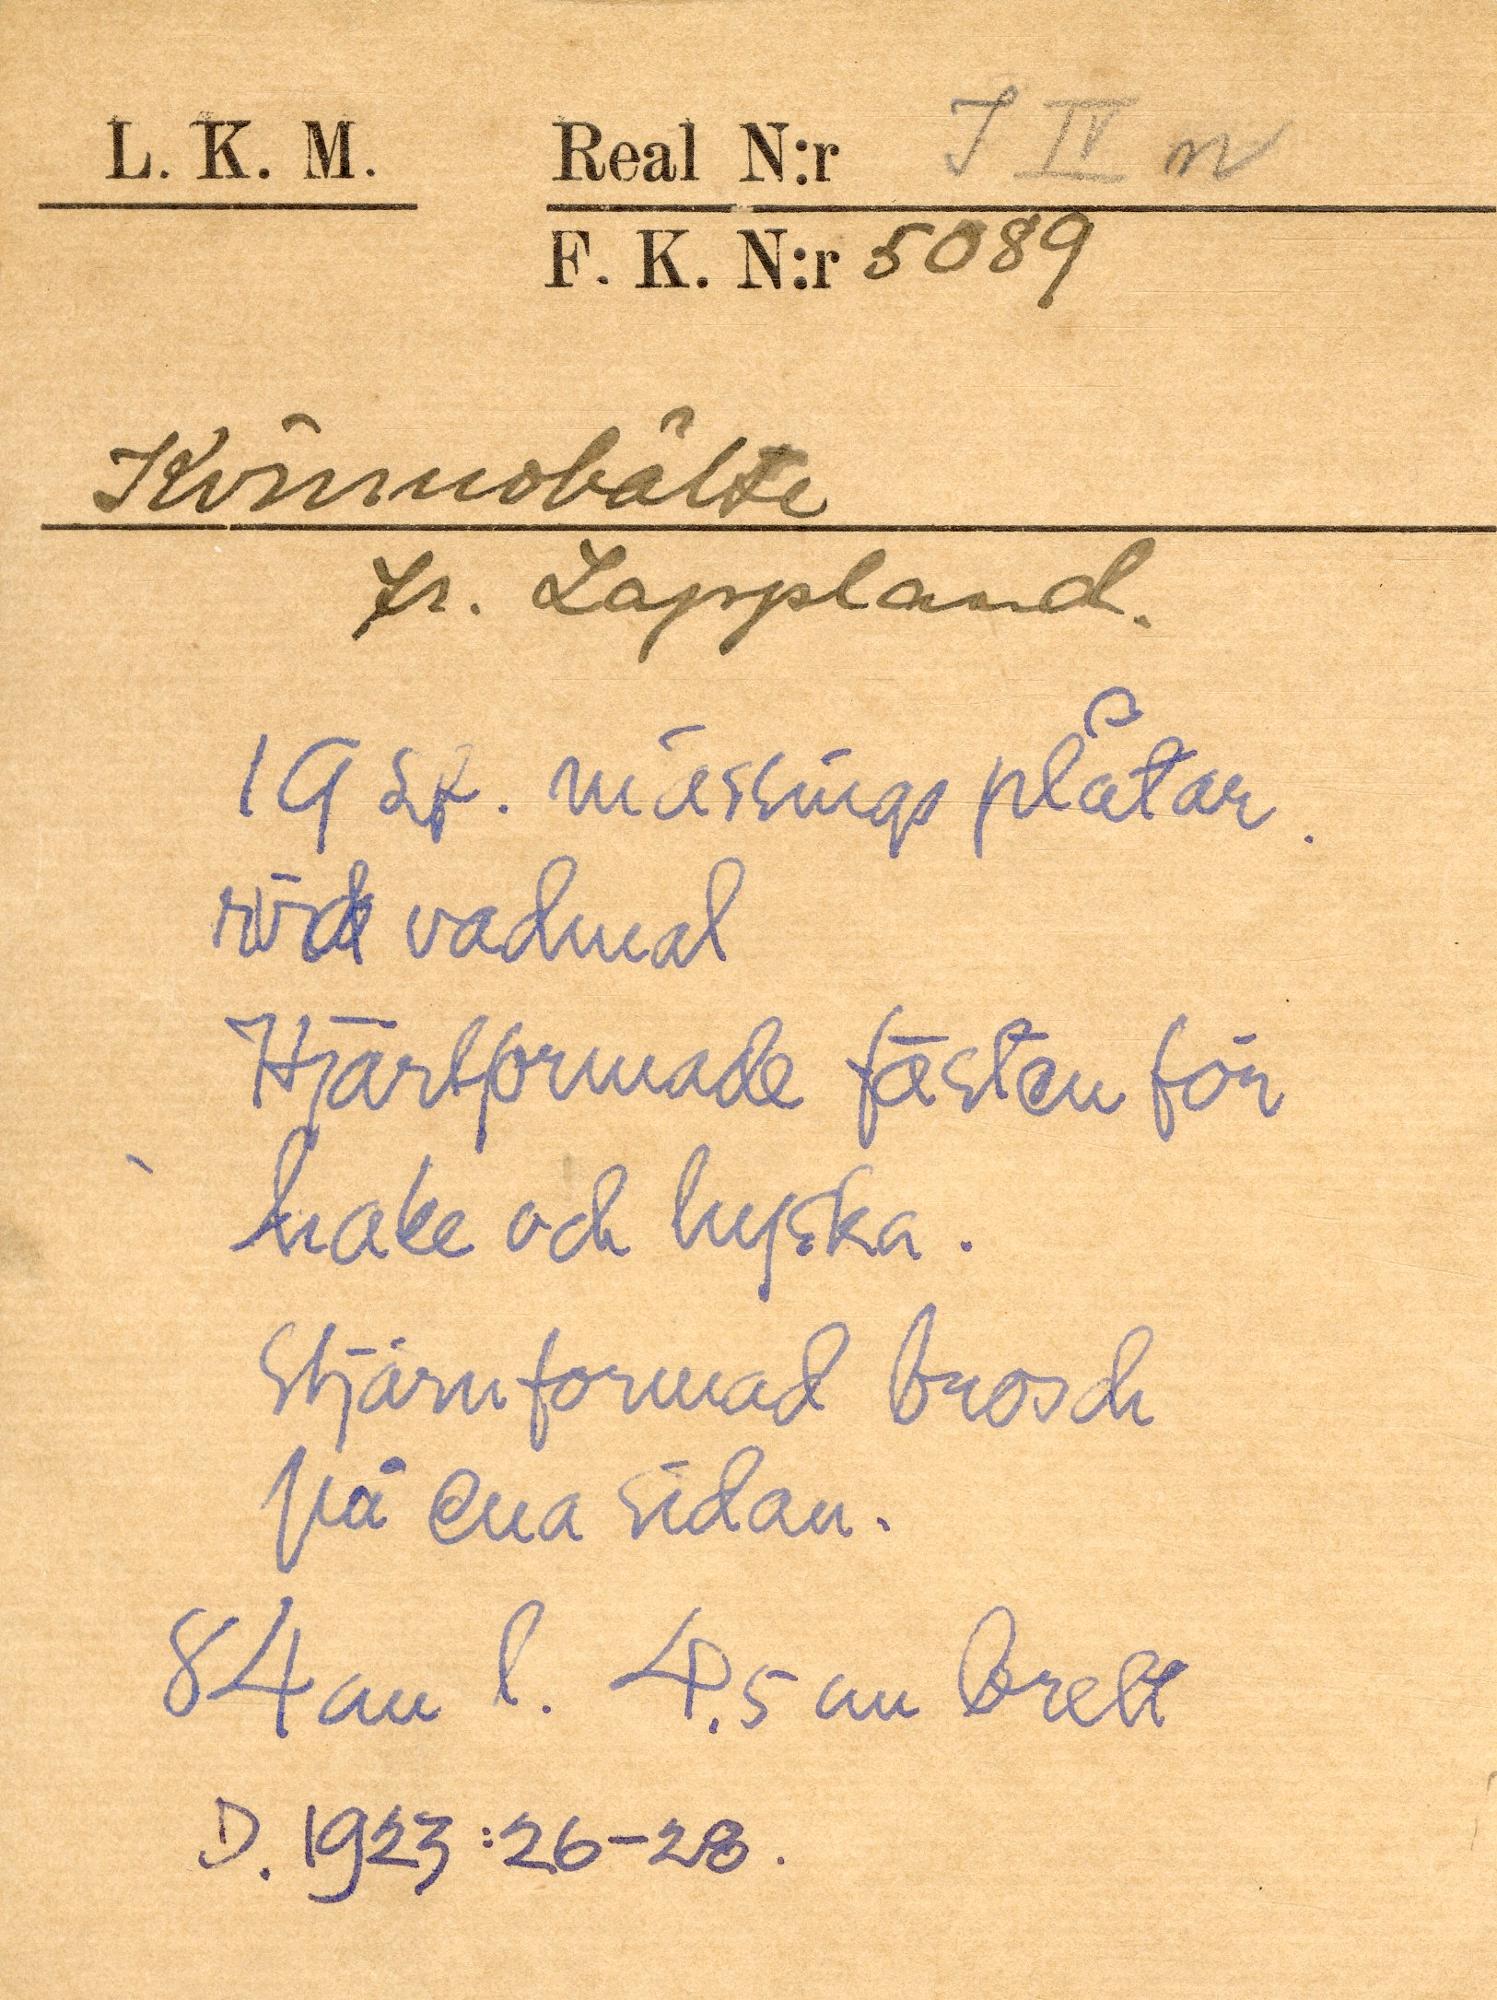 L. K. M. Real N:r J IV n
F. K. N:r 5089
Kvinnobälte
fr. Lappland.
19 st. mässingsplåtar.
röd vadmal
Hjärtformade fästen för
hake och hyska.
Stjärnformad brosch
på ena sidan.
84 cm l. 4,5 cm brett
D. 1923:26-28.